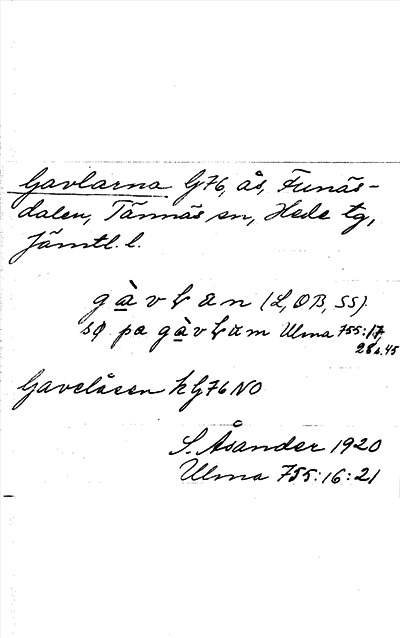 Gavlarna G76, ås, Funäs-
dalen, Tännäs sn, Hede tg,
Jämtl. l.
gàvłan (L, OB, SS).
på gàvłam Ulma 755:17,
28 s. 45
Gavelåsen k G76 NO
S. Åsander 1920
Ulma 755:16:21